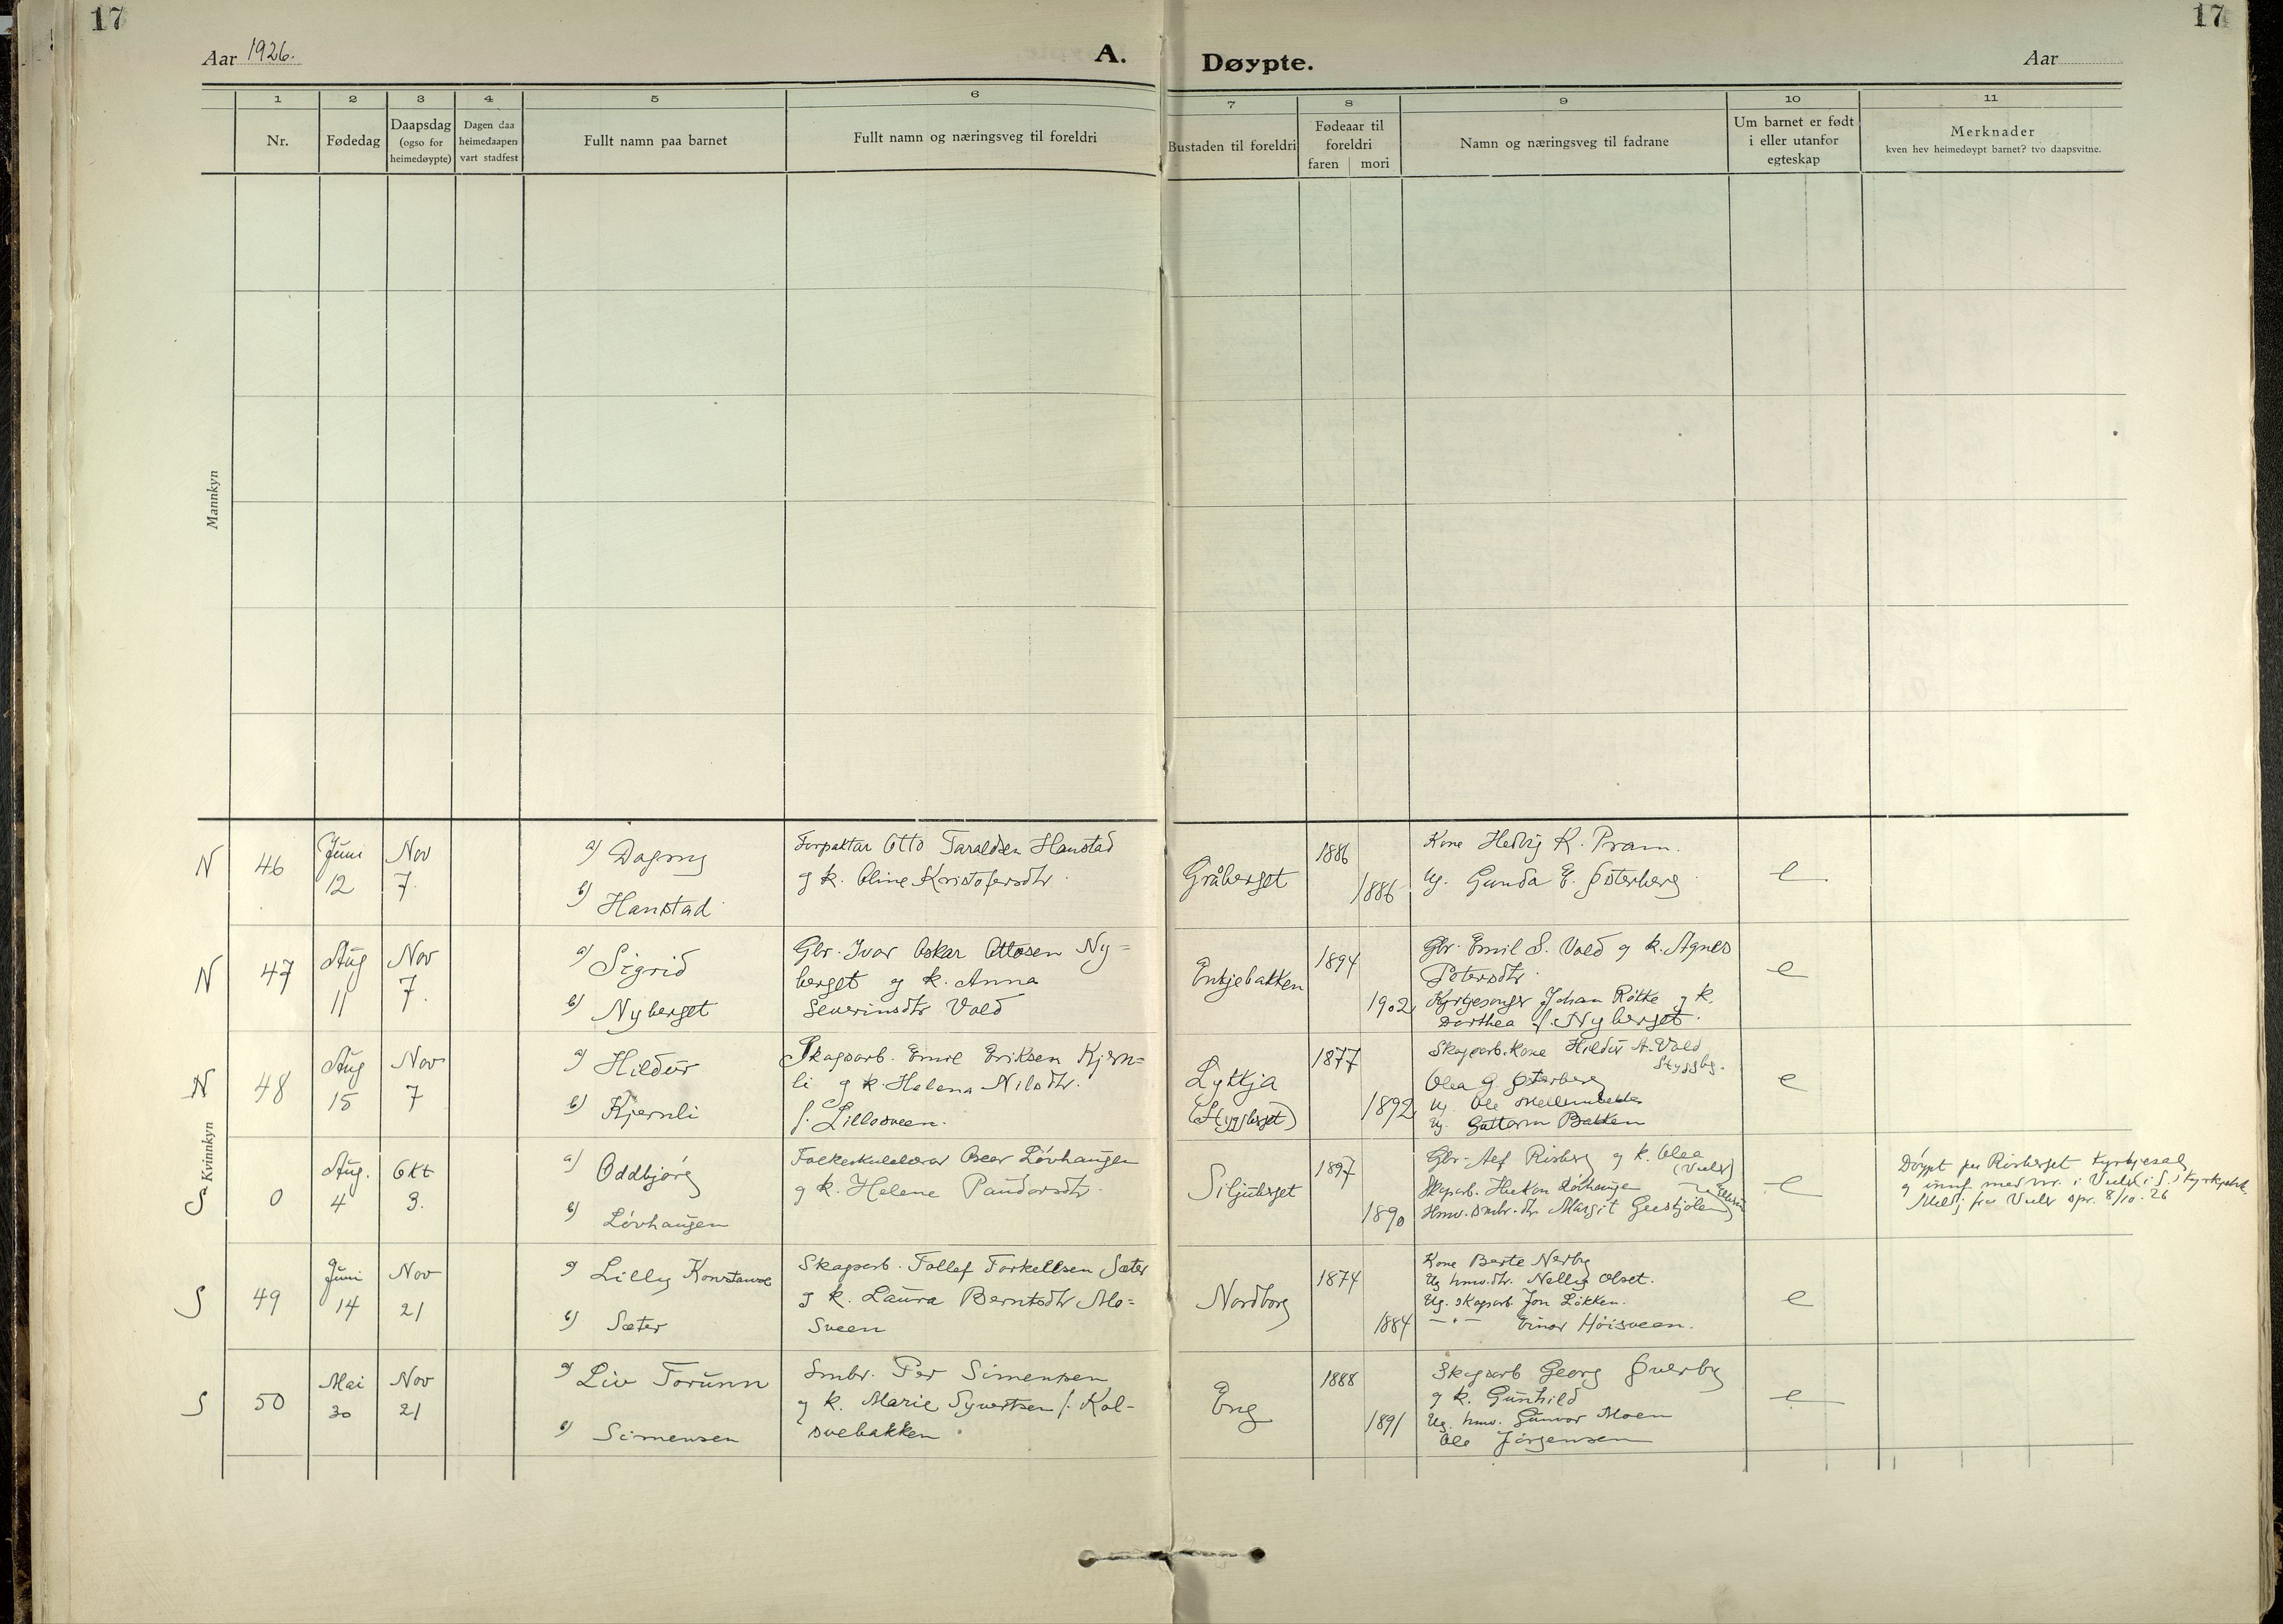 17
17
Aar 1926.
A. Døypte.
Aar
1 2 3 4 5 6 7 8 9 10 11
Nr.
Fødedag
Daapsdag (ogso for heimedøypte)
Dagen daa heimedaapen vart stadfest
Fullt namn paa barnet
Fullt namn og næringsveg til foreldri
Bustaden til foreldri
Fødeaar til foreldri
faren mori
Namn og næringsveg til fadrane
Um barnet er født i eller utanfor egteskap
Merknader
kven hev heimedøypt barnet? tvo daapsvitne.
Mannkyn
Kvinnkyn
N 46 Juni 12 Nov 7.
a) Dagny
b) Hanstad
Forpaktar Otto Taraldsen Hanstad
g k. Oline Kristofersdtr.
Gråberget
1886
1886
Kone Hedvig K. Pram.
Ug. Gunda E. Østerberg
e
N 47 Aug 11 Nov 7.
a) Sigrid
b) Nyberget
Gbr. Ivar Oskar Ottosen Ny-
berget g k. Anna
Severinsdtr Vold
Enkjebakken
1894
1902
Gbr. Emil S. Vold g k. Agnes
Petersdtr
Kyrkjesongr Johan Røtke g k.
Dorthea f. Nyberget.
e
N 48 Aug 15 Nov 7
a) Hildur
b) Kjernli
Skogsarb. Emil Eriksen Kjern-
li g k. Helena Nilsdtr.
f. Lillosveen.
Lykkja
(Styggberget)
1877
1892
Skogsarb. kone Hildur A. Vold
Styggbg.
Olea G. Østerberg
Ug. Ole Mellembakken
Ug. Guttorm Bakken
e
S 0 Aug. 4 Okt 3.
a) Oddbjørg
b) Lövhaugen
Folkeskulelærar Oscar Lövhaugen
g k. Helene Paudersdtr.
Siljuberget
1897
1890
Gbr. Alf Risberg g k. Olea
(Vuler)
Skogsarb. Haakon Lövhaugen
Hmv. smbr. dtr Margit Geeskjölen
e
Döypt paa Risberget kyrkjesal
g innf. med nr. i Vuler i S. Kyrkjebok.
Meld. fra Vuler spr. 8/10-26
S 49 Juni 14 Nov 21
a) Lilly Konstanse
b) Sæter
Skogsarb. Tollef Torkellsen Sæter
g k. Laura Berntsdtr Mo-
sveen
Nordborg
1874
1884
Kone Berte Nerby
Ug hmv.dtr. Nelly Olset.
Ug. skogsarb. Jon Løkken.
— " — Einar Höisveen.
e
S 50 Mai 30 Nov 21
a) Liv Torunn
b) Simensen
Smbr. Per Simensen
g k. Marie Syvertsen f. Kol-
svebakken
Eng
1888
1891
Skogsarb Georg Øverby
g k. Gunhild
Ug. hmv. Gunvor Moen
Ole Jörgensen
e